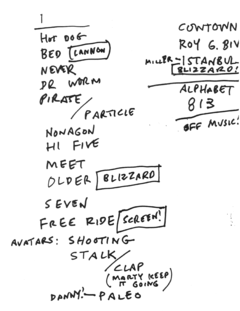 1
HOT DOG
BED CANNON
NEVER
DR WORM
PIRATE
/ PARTICLE
NONAGON
HI FIVE
MEET
OLDER BLIZZARD
SEVEN
FREE RIDE SCREEN!
AVATARS: SHOOTING
STALK
/ CLAP
(MARTY KEEP
IT GOING)
DANNY! — PALEO
COWTOWN
ROY G. BIV
MILLER - ISTANBUL
BLIZZARD!
ALPHABET
813
OFF MUSIC!